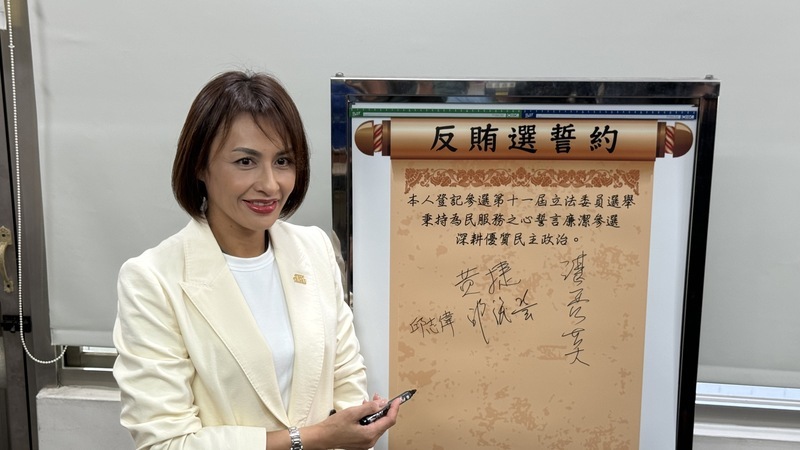 反賄選誓約
本人登記參選第十一屆立法委員選舉
秉持為民服務之心誓言廉潔參選
深耕優質民主政治。
黄捷
邱志偉